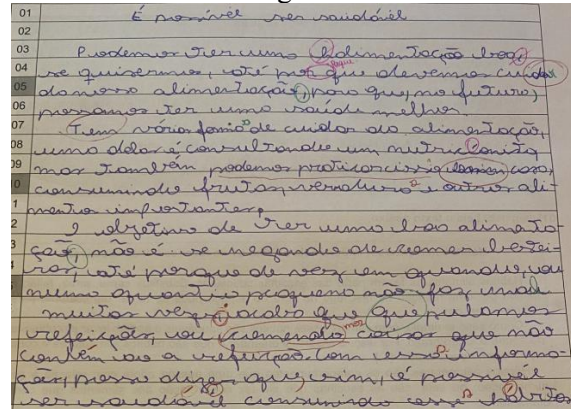 01 É possível ser saudável
02
03 Podemos ter uma alimentação boa,
04 se quisermos, até por que devemos cuidar
05 da nossa alimentação, para que, no futuro,
06 possamos ter uma saúde melhor.
07 Tem várias formas de cuidar da alimentação,
08 uma delas é consultando um nutricionista
09 mas também podemos praticar isso em casa,
10 consumindo frutas, verduras e outros ali-
1 mentos importantes.
2 O objetivo de ter uma boa alimenta-
3 ção, não é se negando de comer bestei-
ras, até porque de vez em quando, ou
numa quantia pequena não faz mal
muitas vezes acaba que que pulamos
refeições, ou comendo coisas que não
contém a refeição. Com essas informa-
ções, posso dizer que, sim, é possível
ser saudável consumindo esses hábitos